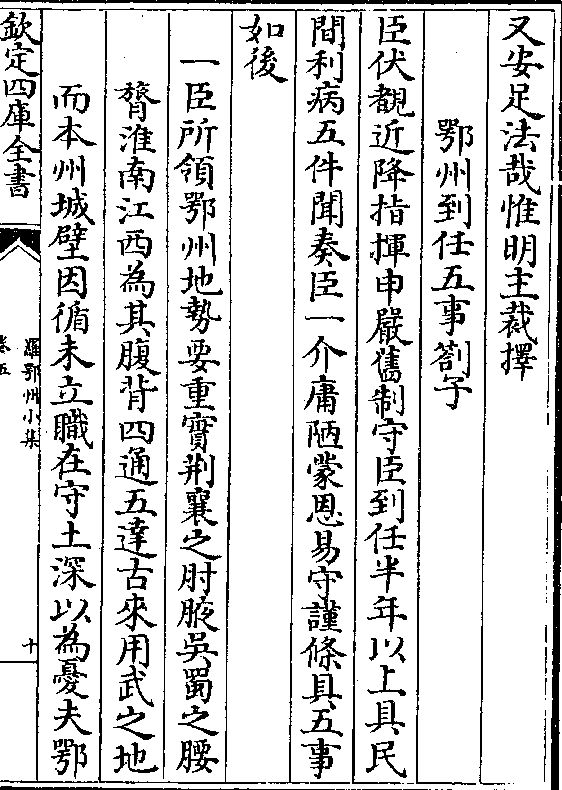 又安足法哉惟明主裁擇
鄂州到任五事劄子
臣伏覩近降指揮申嚴舊制守臣到任半年以上具民
間利病五件聞奏臣一介庸陋蒙恩易守謹條具五事
如後
一臣所領鄂州地勢要重實荆襄之肘腋吳蜀之腰
膂淮南江西為其腹背四通五達古來用武之地
而本州城壁因循未立職在守土深以為憂夫鄂
欽定四庫全書
羅鄂州小集
卷五
十